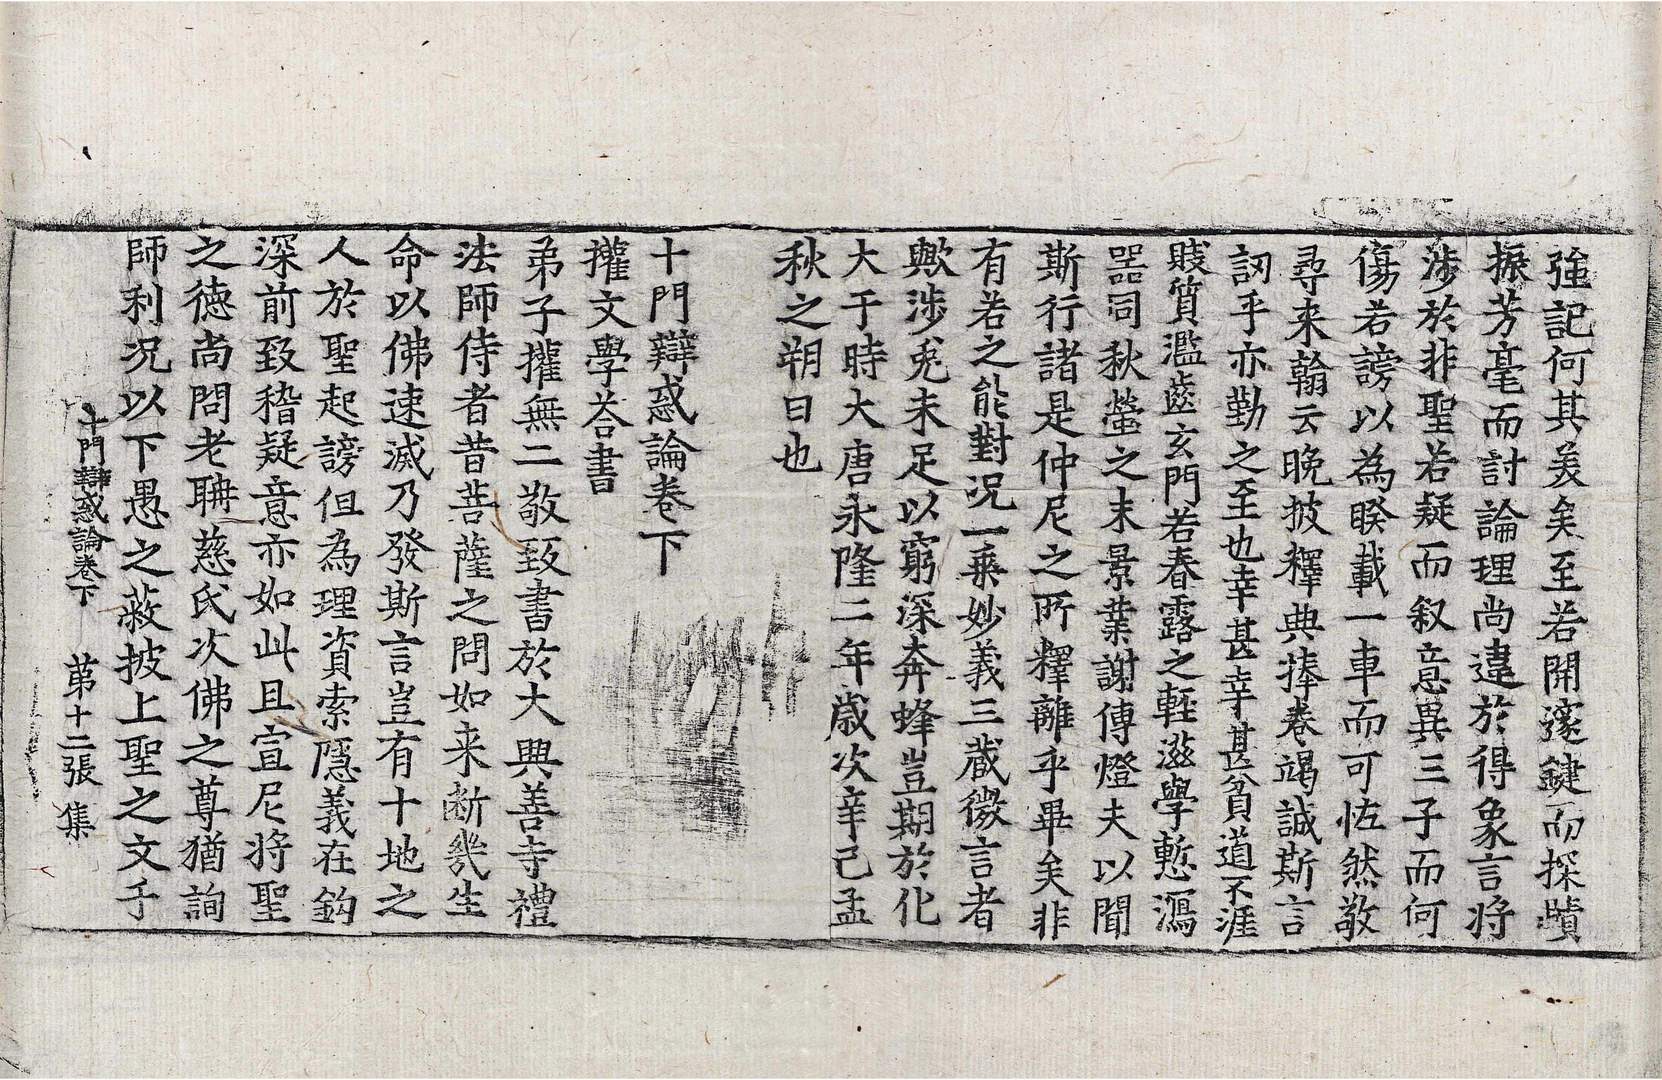 強記何其羙矣至若開𨗉鍵而探賾
振芳毫而討論理尚違於得象言將
涉於非聖若疑而叙意異三子而何
傷若謗以為睽載一車而可恠然敬
尋来翰云晚披釋典捧卷竭誠斯言
訒乎亦勤之至也幸甚幸甚貧道不涯
賤質濫齒玄門若春露之輕滋學慙㵼
器同秋螢之末景業謝傳燈夫以聞
斯行諸是仲尼之所釋離乎畢矣非
有若之能對况一乗妙義三蔵微言者
歟涉兎未足以窮深奔蜂豈期於化
大于時大唐永隆二年歳次辛己孟
秋之朔日也
十門辯惑論卷下
攉文學荅書
弟子攉無二敬致書於大興善寺禮
法師侍者昔菩薩之問如来断㡬生
命以佛速滅乃發斯言豈有十地之
人於聖起謗但為理資索隱義在鈎
深前致稽疑意亦如此且宣尼將聖
之徳尚問老聃慈氏次佛之尊猶詢
師利况以下愚之蔽披上聖之文乎
十門辯惑論卷下 第十二張 集